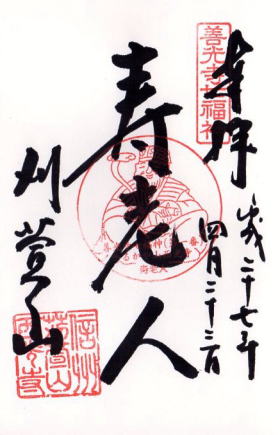 善光寺七福神
奉拝
平成二十七年
四月二十三日
寿老人
寿老人
刈萱山
信州
苅萱山
西光寺